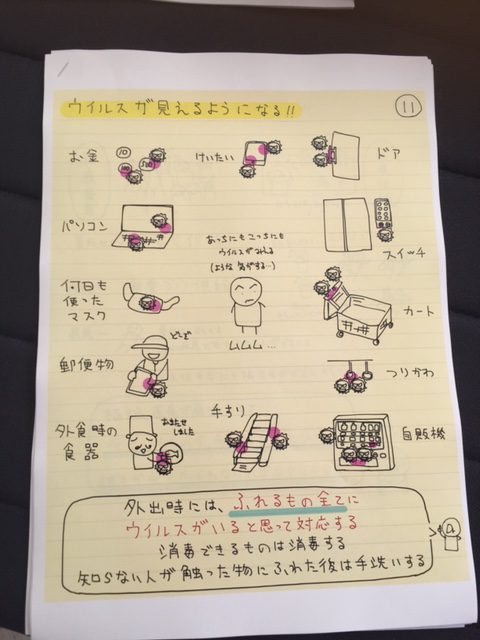 ウイルスが見えるようになる!!
11
お金
10
100
500
けいたい
ドア
パソコン
あっちにもこっちにも
ウイルスがみえる
(ような気がする…)
スイッチ
何日も
使った
マスク
ムムム…
カート
郵便物
どーぞ
つりかわ
外食時の
食器
おまたせ
しました
手すり
自販機
外出時には、ふれるもの全てに
ウイルスがいると思って対応する
消毒できるものは消毒する
知らない人が触った物にふれた後は手洗いする